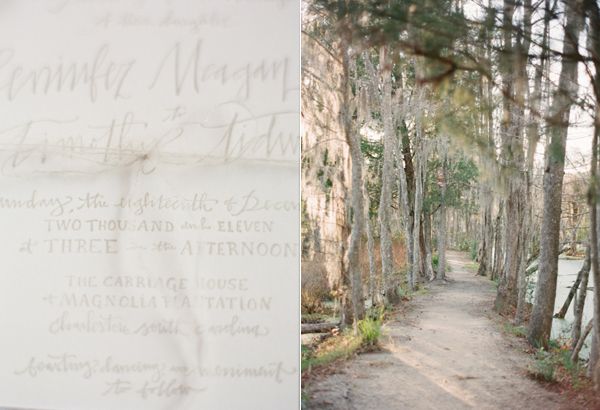 Jennifer Meagan
to
Timothy Tidw
unday, the eighteenth of Decem
TWO THOUSAND and ELEVEN
at THREE in the AFTERNOON
THE CARRIAGE HOUSE
at MAGNOLIA PLANTATION
Charleston, south carolina
feasting, dancing, and merriment
to follow